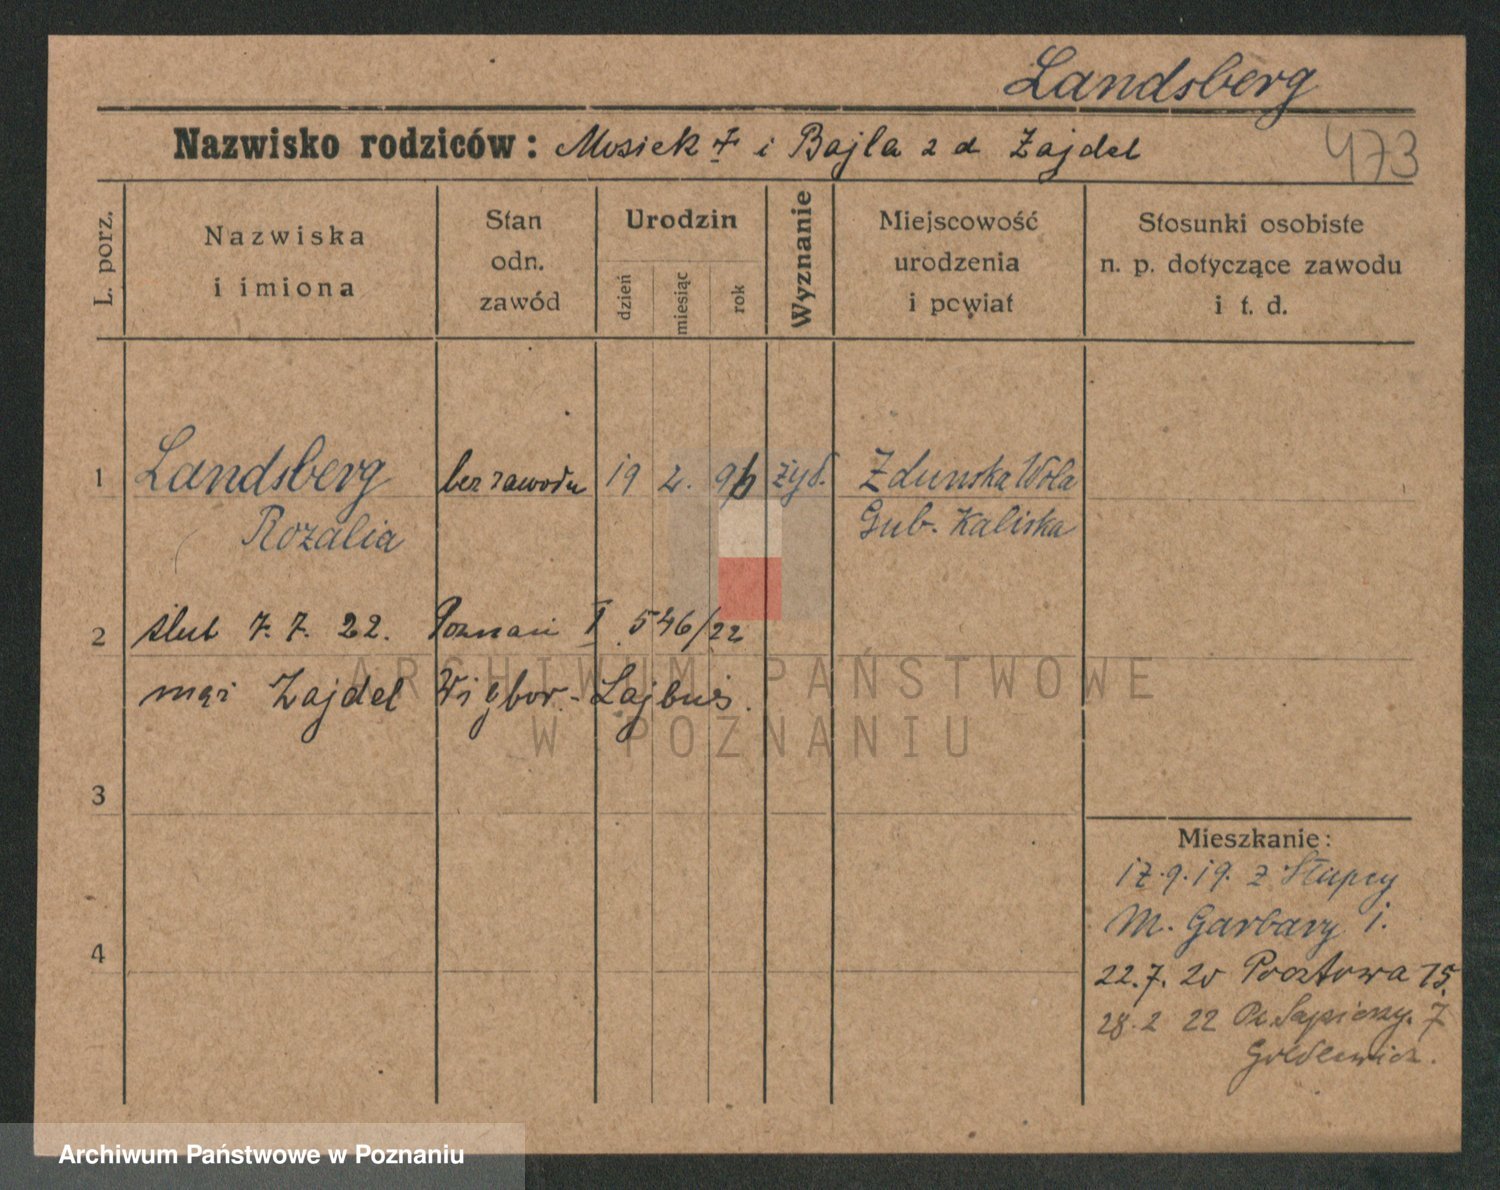 Landsberg
Nazwisko rodziców: Mosiek † i Bajla z d Zajdel
473
L. porz.
Nazwiska i imiona
Stan odn. zawód
Urodzin
dzień
miesiąc
rok
Wyznanie
Miejscowość urodzenia i powiat
Stosunki osobiste n. p. dotyczące zawodu i t. d.
1 Landsberg bez zawodu 19 2. 96 żyd. Zdunska Wola
Rozalia Gub. Kaliska
2 ślub 7. 7. 22. Poznań I 546/22
mąż Zajdel Wigbor-Lajbuś.
3
4
Mieszkanie:
17.9.19. z Słupcy
M. Garbary 1.
22.7. 20 Pocztowa 15.
28.2 22 Pl. Sapieży. 7
ARCHIWUM PAŃSTWOWE
W POZNANIU
Archiwum Państwowe w Poznaniu